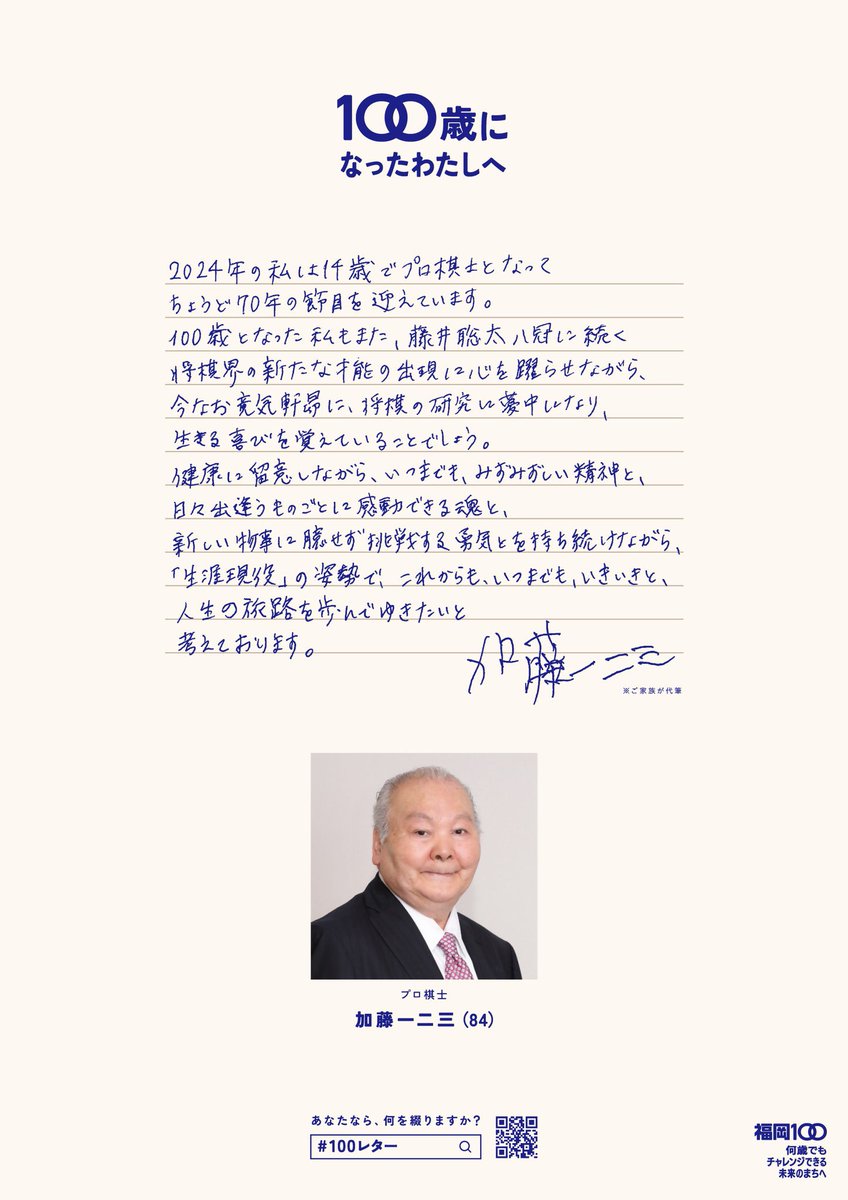 100歳に
なったわたしへ
2024年の私は14歳でプロ棋士となって
ちょうど70年の節目を迎えています。
100歳となった私もまた、藤井聡太八冠に続く
将棋界の新たな才能の出現に心を躍らせながら、
今なお意気軒昂に、将棋の研究に夢中になり、
生きる喜びを覚えていることでしょう。
健康に留意しながら、いつまでも、みずみずしい精神と、
日々出逢うものごとに感動できる魂と、
新しい物事に臆せず挑戦する勇気とを持ち続けながら、
「生涯現役」の姿勢で、これからも、いつまでも、いきいきと、
人生の旅路を歩んでゆきたいと
考えております。
加藤一二三
※ご家族が代筆
プロ棋士
加藤一二三(84)
あなたなら、何を綴りますか?
#100レター
福岡100
何歳でも
チャレンジできる
未来のまちへ